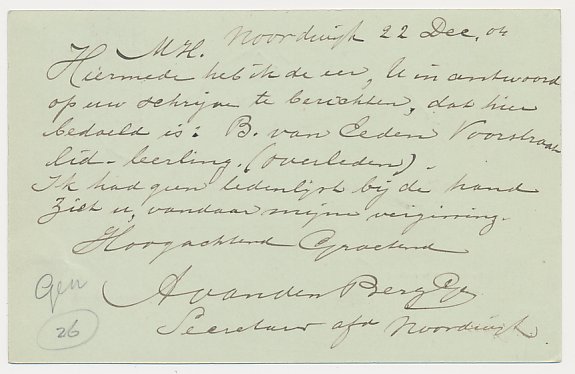 Noordwijk 22 Dec. 04
M.H.
Hiermede heb ik de eer, U in antwoord
op uw schrijven te berichten, dat hier
bedoeld is: B. van Eeden Voorstraat
lid-leerling. (overleden).
Ik had geen ledenlijst bij de hand
Ziet u, vandaar mijne vergissing.
Hoogachtend Groetend
A van den Berg
Secretaris afd Noordwijk
Gen
26